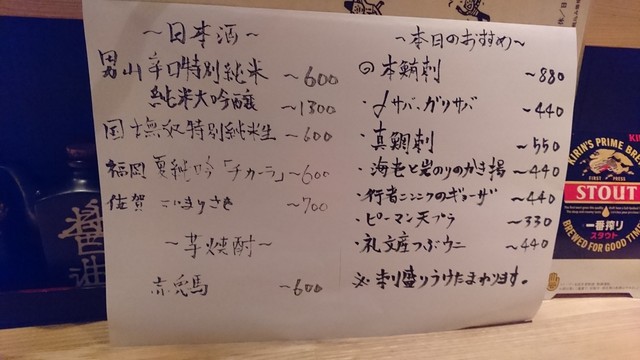 ～日本酒～
男山 辛口特別純米 ～600
純米大吟醸 ～1300
国士無双 特別純米生 ～600
福岡 夏純吟「チカーラ」～600
佐賀 こいまりさき ～700
～芋焼酎～
赤兎馬 ～600
～本日のおすすめ～
本鮪刺 ～880
・〆サバ・ガリサバ ～440
・真鯛刺 ～550
・海老と岩のりのかき揚 ～440
・行者ニンニクのギョーザ ～440
・ピーマン天プラ ～330
・礼文産つぶウニ ～440
※ 刺り盛りうけたまわります。
醤油
KIRIN'S PRIME BREW
STOUT
一番搾り
スタウト
BREWED FOR GOOD TIMES